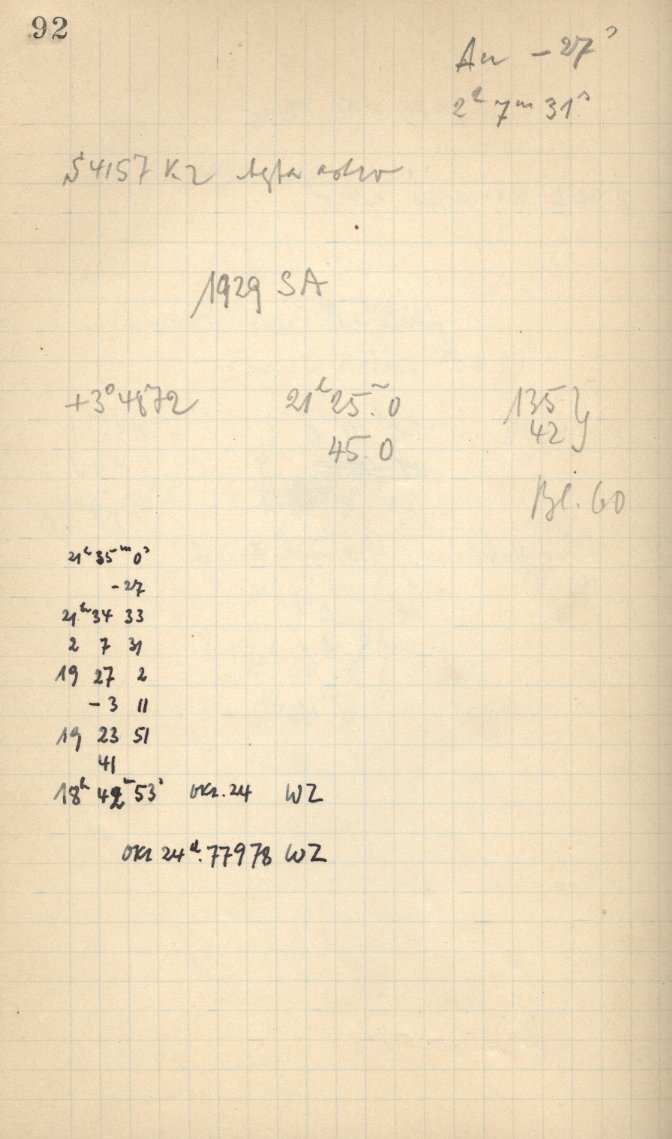 92
Au -27ˢ
2ʰ 7ᵐ 31ˢ
S 4157 K2 Agfa astro
1929 SA
+3° 4872 21ʰ 25.ᵐ0 135 }
45.0 42
Bl. 60
21ʰ 35ᵐ 0ˢ
-27
21ʰ 34 33
2 7 31
19 27 2
-3 11
19 23 51
41
18ʰ 42ᵐ 53ˢ Okt. 24 WZ
Okt 24ᵈ.77978 WZ